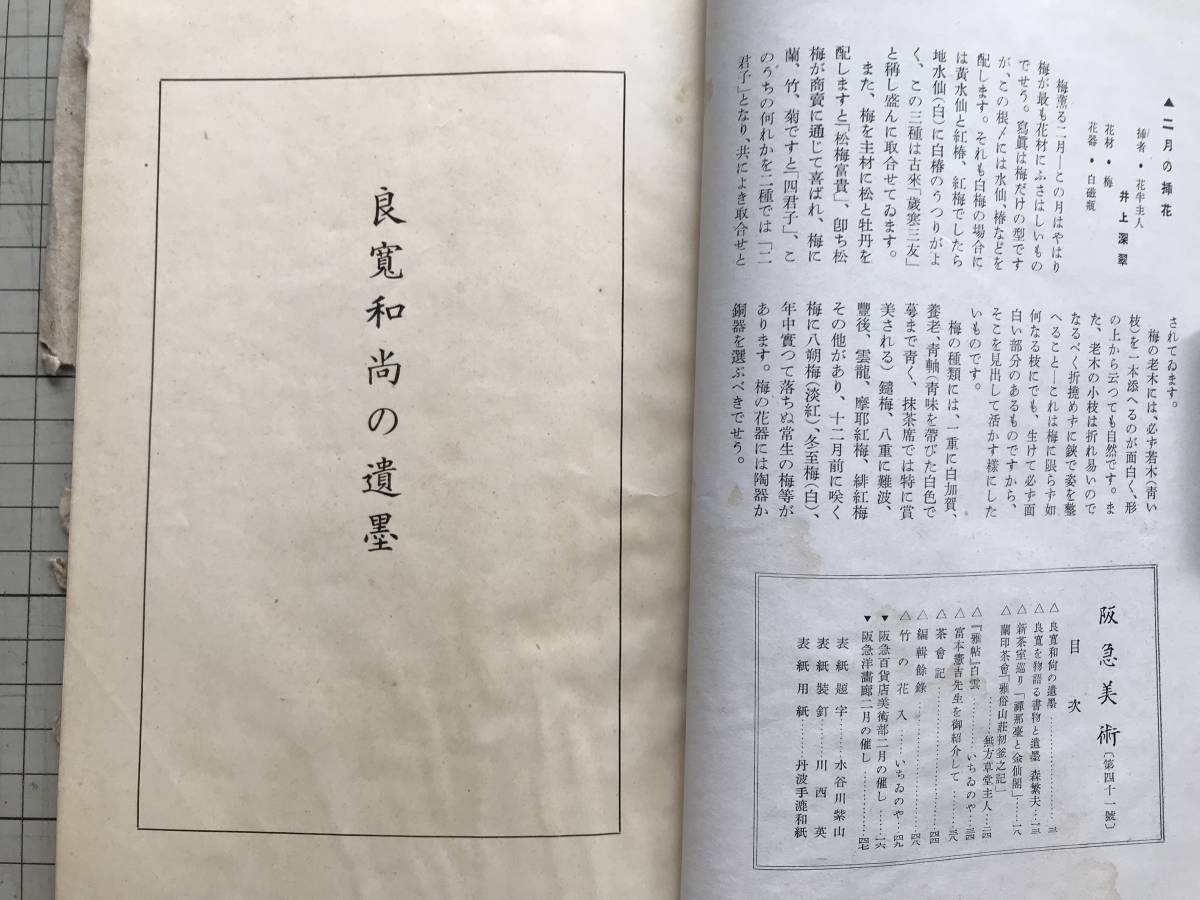 ▲二月の挿花
井上深翠
挿者・花半主人
花材・梅
花器・白磁瓶
梅薫る二月―この月はやはり
梅が最も花材にふさはしいもの
でせう。寫眞は梅だけの型です
が、この根〆には水仙、椿などを
配します。それも白梅の場合に
は黄水仙と紅椿、紅梅でしたら
地水仙(白)に白椿のうつりがよ
く、この三種は古來「歳寒三友」
と稱し盛んに取合せてゐます。
また、梅を主材に松と牡丹を
配しますと「松梅富貴」、卽ち松
梅が商賣に通じて喜ばれ、梅に
蘭、竹、菊ですと「四君子」、こ
のうちの何れかを二種では「二
君子」となり、共によき取合せと
されてゐます。
梅の老木には、必ず若木(青い
枝)を一本添へるのが面白く、形
の上から云つても自然です。ま
た、老木の小枝は折れ易いので
なるべく折撓めずに鋏で姿を整
へること―これは梅に限らず如
何なる枝にでも、生けて必ず面
白い部分のあるものですから、
そこを見出して活かす樣にした
いものです。
梅の種類には、一重に白加賀、
養老、青軸(青味を帶びた白色で
萼まで青く、抹茶席では特に賞
美される)鎧梅、八重に難波、
豐後、雲龍、摩耶紅梅、緋紅梅
その他があり、十二月前に咲く
梅に八朔梅(淡紅)、冬至梅(白)、
年中實つて落ちぬ常生の梅等が
あります。梅の花器には陶器か
銅器を選ぶべきでせう。
阪急美術〔第四十一號〕
目次
△良寛和尙の遺墨……三
△良寛を物語る書物と遺墨 森繁夫…一三
△新茶室巡り「禪那臺と金仙閣」…一八
△蘭印茶會「雅俗山莊初釜之記」
……無方草堂主人…二四
△「雅帖」白雲……いちゐのや…三四
△富本憲吉先生を御紹介して……三八
△茶會記……四四
△編輯餘錄……四八
△竹の花入……いちゐのや…四九
▼阪急百貨店美術部二月の催し……一六
▼阪急洋畵廊二月の催し……四七
表紙題字……水谷川紫山
表紙裝釘……川西英
表紙用紙……丹波手漉和紙
良寬和尚の遺墨